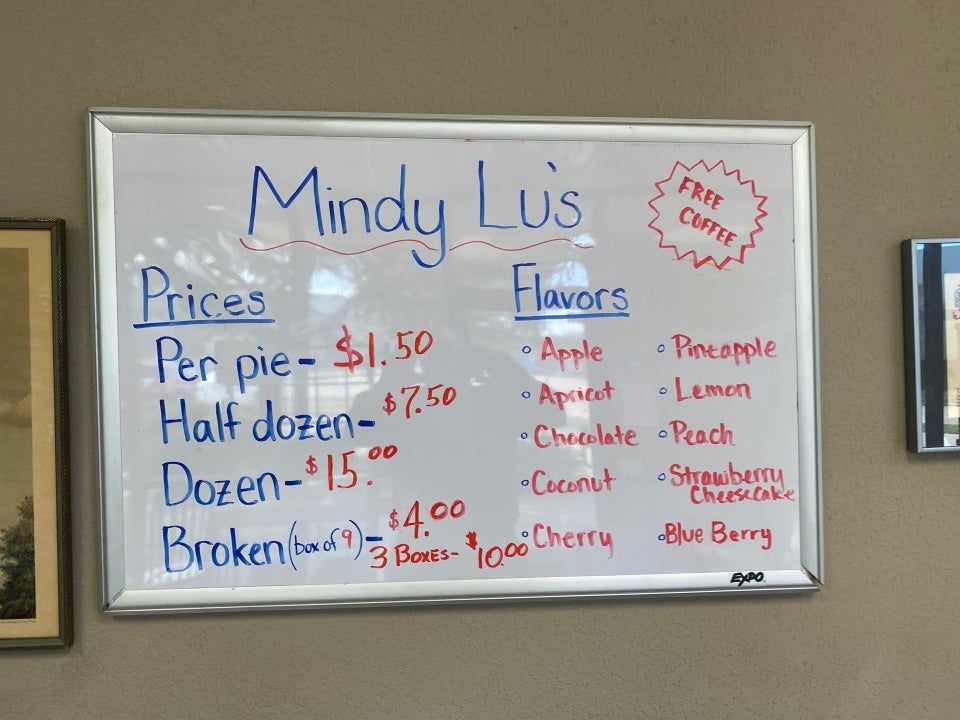 Mindy Lu's
FREE
COFFEE
Prices
Per pie - $1.50
Half dozen - $7.50
Dozen - $15.00
Broken (box of 9) - $4.00
3 BOXES - $10.00
Flavors
• Apple
• Apricot
• Chocolate
• Coconut
• Cherry
• Pineapple
• Lemon
• Peach
• Strawberry
Cheesecake
• Blue Berry
EXPO